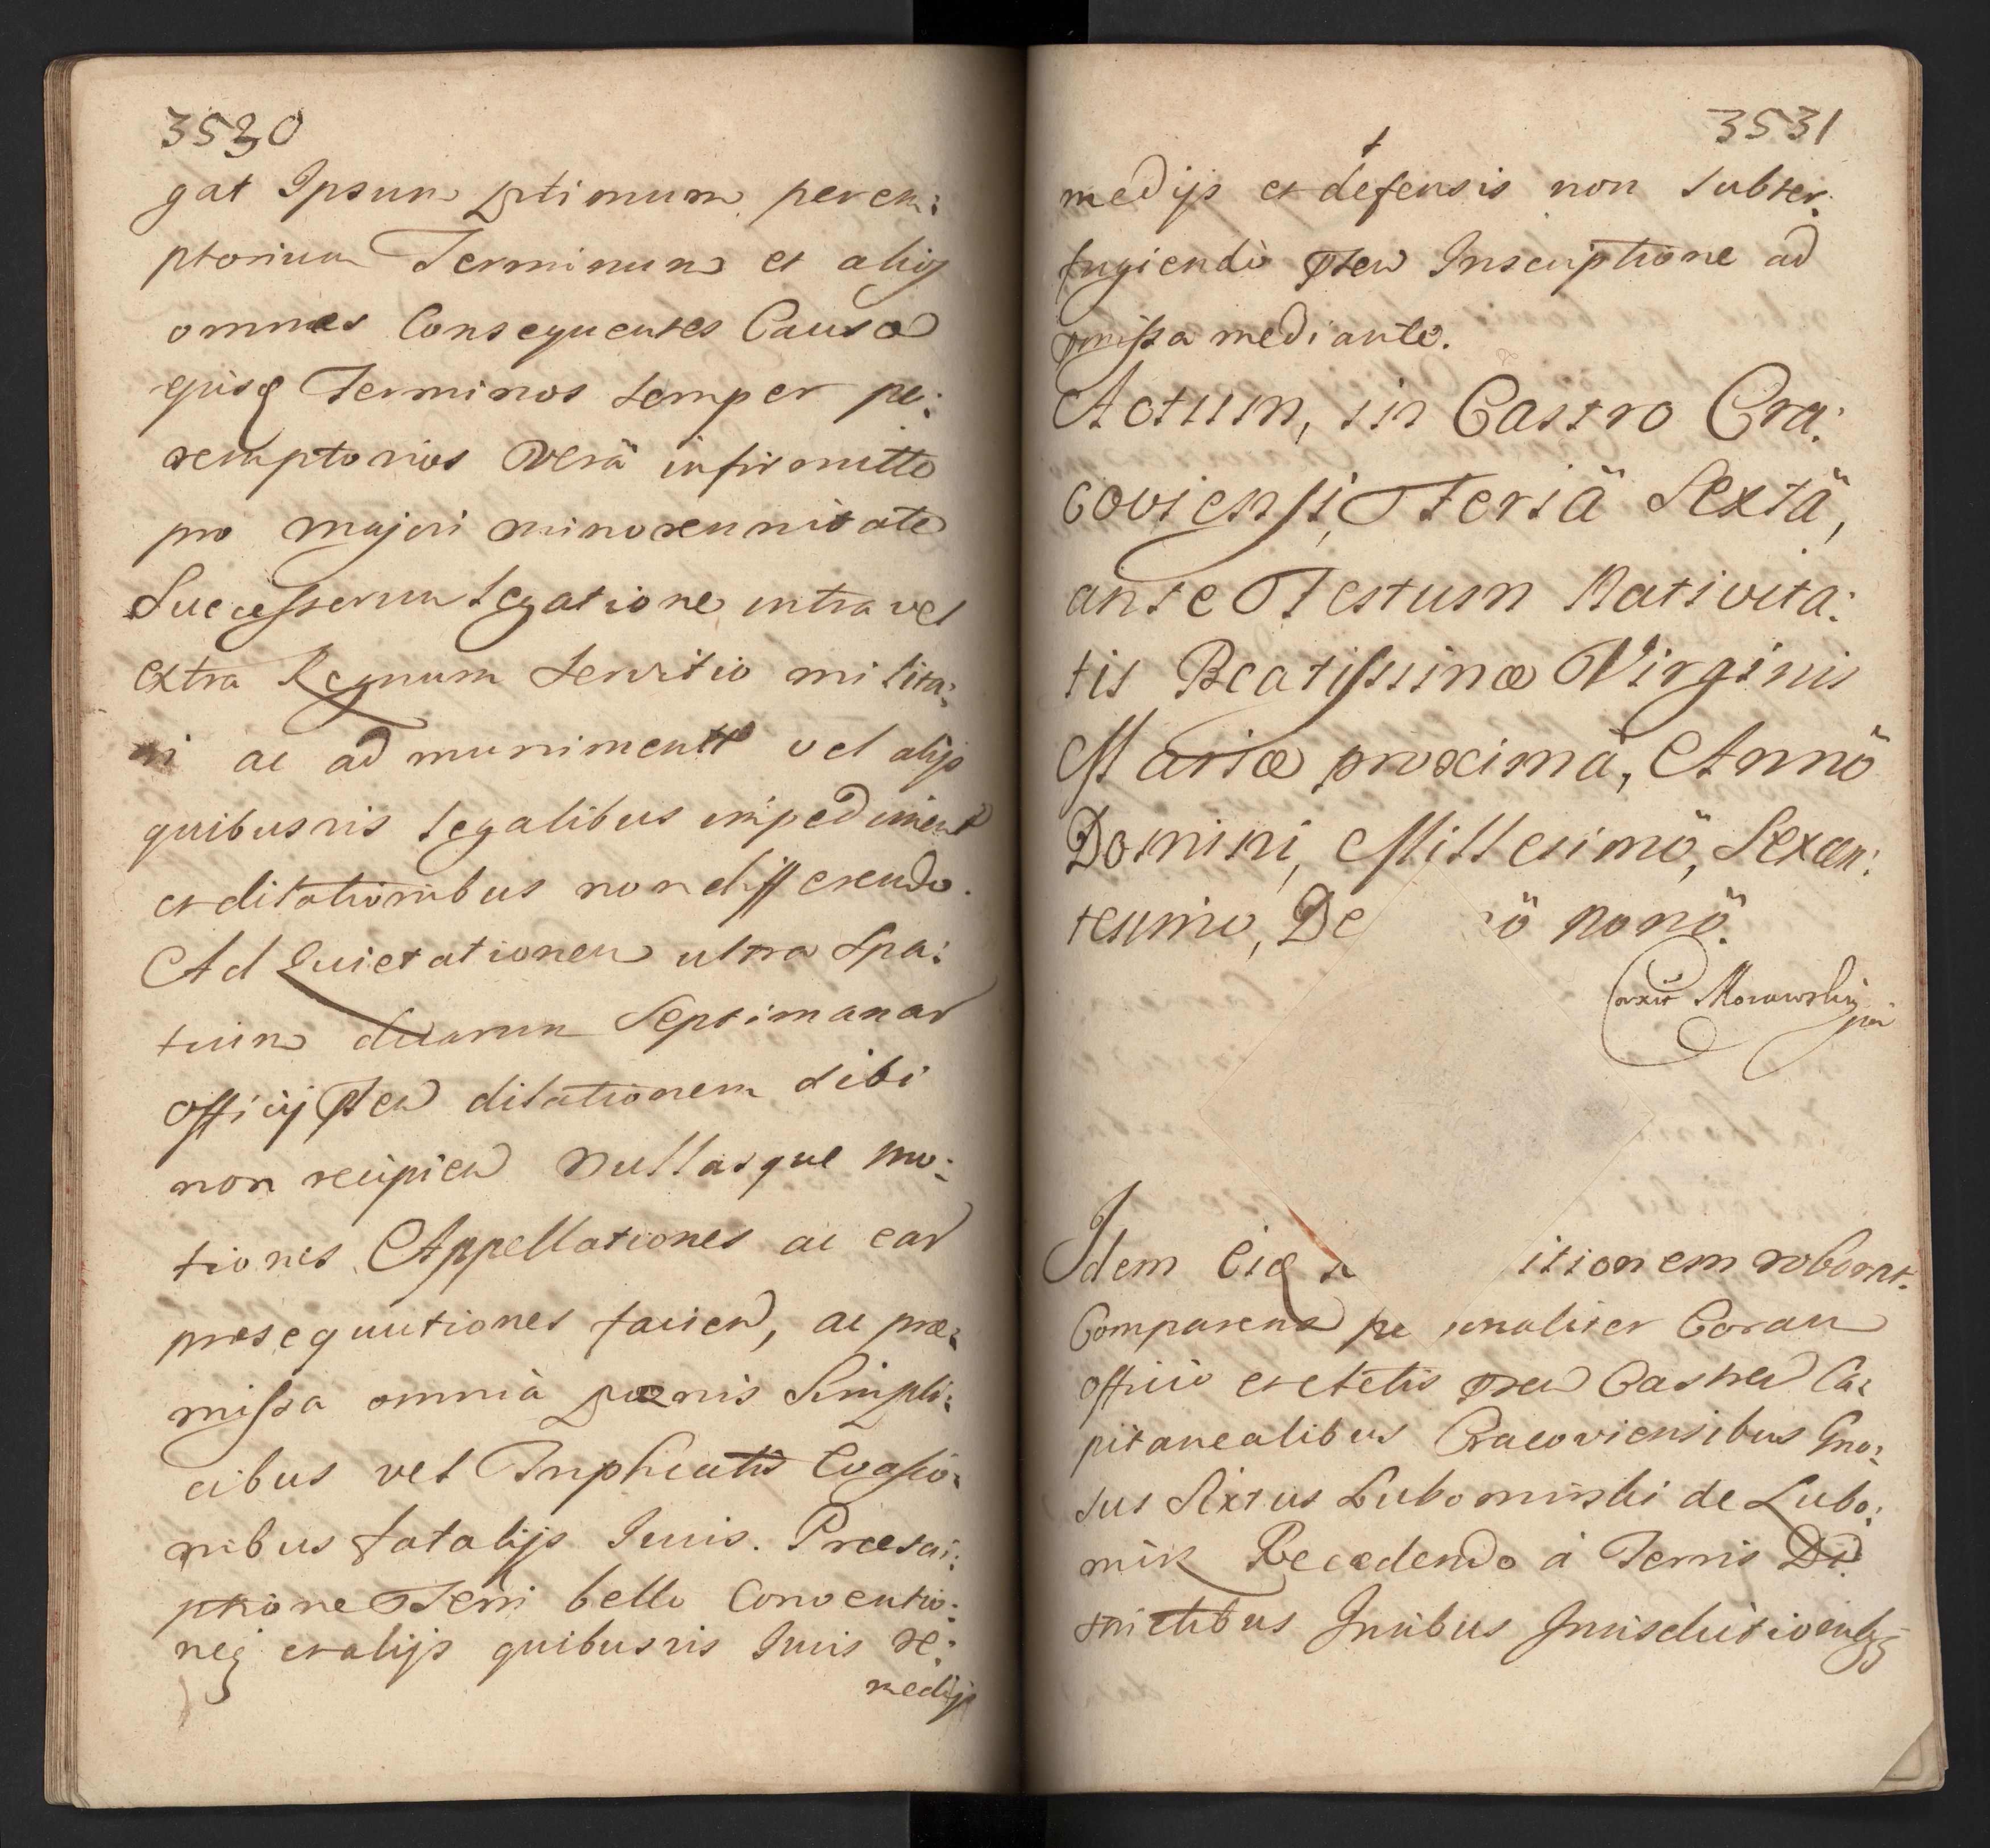 3530
gat Ipsum ptimum perem:
ptorium Terminum et alios
omnes Consequentes Causæ
ejusq Terminos semper pe:
remptorios verä infirmitte
pro majori minorennitate
Successorum legatione intra vel
extra Regnum servitio milita:
ri ac ad munimentt vel alijs
quibusvis legalibus impediment
et dilationibus non differendo.
Ad Quietationem ultra Spa:
tium duarum Septimanar
officij Pten dilationem sibi
non recipien Nullasque mo:
tiones Appellationes ac ear
prosequutiones facien, ac præ:
missa omnia pœnis Simpli:
cibus vel Triplicatis Evasio:
nibus fatalijs Juris. Præscri:
ptione Terri bello Conventio:
neq et alijs quibusvis Juris re:
medijs
3531
medijs et defensis non subter.
fugiendo Pten Inscriptione ad
pmissa mediante.
Actum, in Castro Cra:
coviensi, Feriä Sextä,
ante Festum Nativita:
tis Beatissimæ Virginis
Mariæ proximä, Annö
Domini, Millesimö, Sexcen:
tesimo, De nö nonö.
Morawskij
Idem Eiq itionem roborat.
Comparens pe rsonaliter Coram
officio et Actis pten Castren Ca:
pitanealibus Cracoviensibus Gno:
sus Sixtus Lubomirski de Lubo:
mir Recedendo á Terris Di:
strictibus Juribus Jurisdictionibq